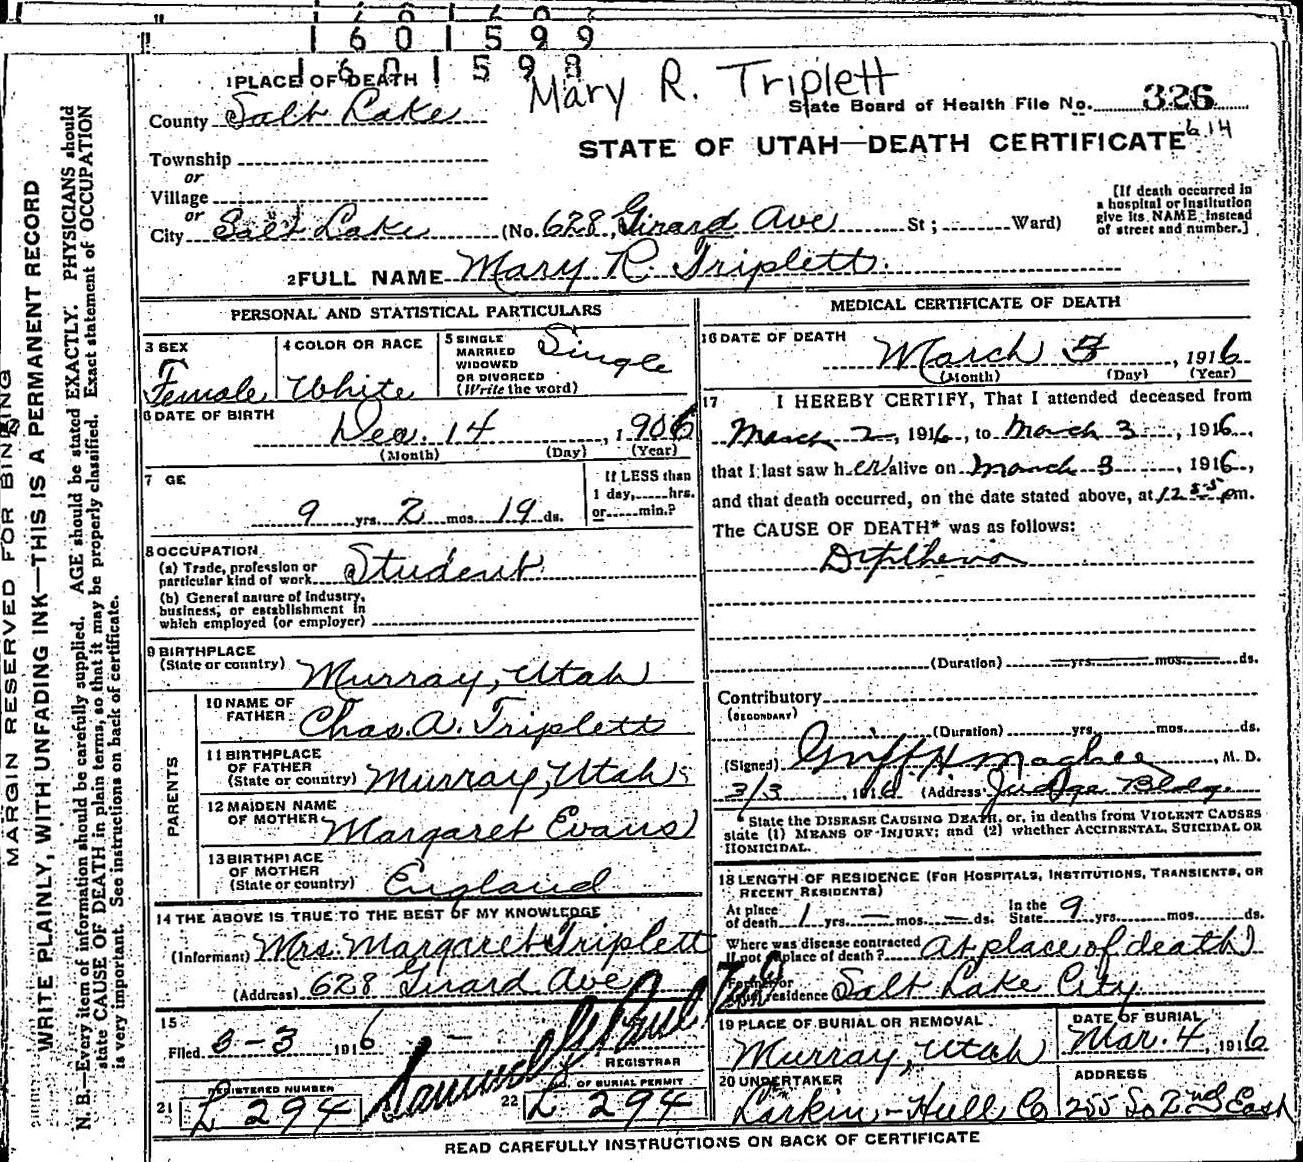 1601599
1601598
Mary R. Triplett
1 PLACE OF DEATH
County Salt Lake
State Board of Health File No. 326
614
STATE OF UTAH—DEATH CERTIFICATE
Township
or
Village
or
City Salt Lake (No. 628, Girard Ave St; Ward)
[If death occurred in
a hospital or institution
give its NAME instead
of street and number.]
2 FULL NAME Mary R. Triplett
PERSONAL AND STATISTICAL PARTICULARS
3 SEX
Female
4 COLOR OR RACE
White
5 SINGLE
MARRIED
WIDOWED
OR DIVORCED
(Write the word)
Single
6 DATE OF BIRTH
Dec. 14, 1906
(Month) (Day) (Year)
7 GE
9 yrs. 2 mos. 19 ds.
If LESS than
1 day, hrs.
or min.?
8 OCCUPATION
(a) Trade, profession or
particular kind of work Student
(b) General nature of Industry,
business, or establishment in
which employed (or employer)
9 BIRTHPLACE
(State or country) Murray, Utah
PARENTS
10 NAME OF
FATHER Chas. A. Triplett
11 BIRTHPLACE
OF FATHER
(State or country) Murray, Utah
12 MAIDEN NAME
OF MOTHER Margaret Evans
13 BIRTHPLACE
OF MOTHER
(State or country) England
14 THE ABOVE IS TRUE TO THE BEST OF MY KNOWLEDGE
(Informant) Mrs. Margaret Triplett
(Address) 628 Girard Ave
15
Filed 3-3 1916
REGISTRAR
REGISTERED NUMBER
21 L 294
22 OF BURIAL PERMIT
L 294
MEDICAL CERTIFICATE OF DEATH
16 DATE OF DEATH
March 3, 1916
(Month) (Day) (Year)
17 I HEREBY CERTIFY, That I attended deceased from
March 2, 1916, to March 3, 1916,
that I last saw her alive on March 3, 1916,
and that death occurred, on the date stated above, at 12 55 pm.
The CAUSE OF DEATH* was as follows:
Diptheria
(Duration) yrs. mos. ds.
Contributory
(SECONDARY)
(Duration) yrs. mos. ds.
(Signed) M. D.
3/3, 1916 (Address) Judge Bldg.
*State the DISEASE CAUSING DEATH, or, in deaths from VIOLENT CAUSES
state (1) MEANS OF INJURY; and (2) whether ACCIDENTAL, SUICIDAL OR
HOMICIDAL.
18 LENGTH OF RESIDENCE (FOR HOSPITALS, INSTITUTIONS, TRANSIENTS, OR
RECENT RESIDENTS)
At place
of death 1 yrs. — mos. — ds.
In the
State 9 yrs. mos. ds.
Where was disease contracted
If not at place of death? At place of death
Former or
usual residence Salt Lake City
19 PLACE OF BURIAL OR REMOVAL
Murray, Utah
DATE OF BURIAL
Mar. 4, 1916
20 UNDERTAKER
Larkin-Hull Co
ADDRESS
255 So 2nd East
READ CAREFULLY INSTRUCTIONS ON BACK OF CERTIFICATE
MARGIN RESERVED FOR BINDING
WRITE PLAINLY, WITH UNFADING INK—THIS IS A PERMANENT RECORD
N. B.—Every item of information should be carefully supplied. AGE should be stated EXACTLY. PHYSICIANS should
state CAUSE OF DEATH in plain terms, so that it may be properly classified. Exact statement of OCCUPATION
is very important. See instructions on back of certificate.